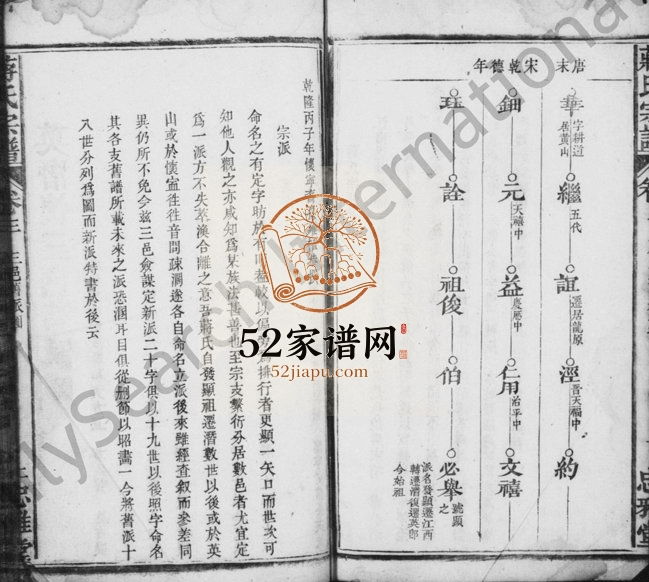 唐末 宋乾德年
華 字耕道居黃山 繼 五代 誼 遷居龍原 溼 晋天福中 約
鈿 元 天禧中 益 慶曆中 仁用 治平中 文禧
珏 詮 祖俊 伯 必舉 號顯之
派名發顯遷江西
轉遷潛復遷英郎
今始祖
蔣氏宗譜
乾隆丙子年懷寧
宗派
命名之有定字昉於有
排行者更顯一矢口而世次可
知他人觀之亦咸知爲某族法甚善也至宗支繁衍分居數邑者尤宜定
爲一派方不失萃渙合離之意吾蔣氏自發顯祖遷潛數世以後或於英
山或於懷寧往往音問疎濶遂各自命名立派後來雖經查叙而參差同
異仍所不免今兹三邑僉謀定新派二十字俱以十九世以後照字命名
其各支舊譜所載未來之派恐溷耳目俱從刪節以昭畫一今將舊派十
入世分列爲圖而新派特書於後云
52家谱网
52jiapu.com
FamilySearch International